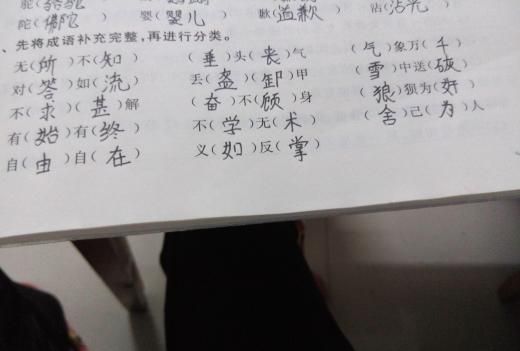 陀(佛陀) 婴(婴儿) 歉(道歉) 沾(沾光)
、先将成语补充完整,再进行分类。
无(所)不(知) (垂)头(丧)气 (气)象万(千)
对(答)如(流) 丢(盔)(卸)甲 (雪)中送(碳)
不(求)(甚)解 (奋)不(顾)身 (狼)狈为(奸)
有(始)有(终) 不(学)无(术) (舍)己(为)人
自(由)自(在) 义(如)反(掌)